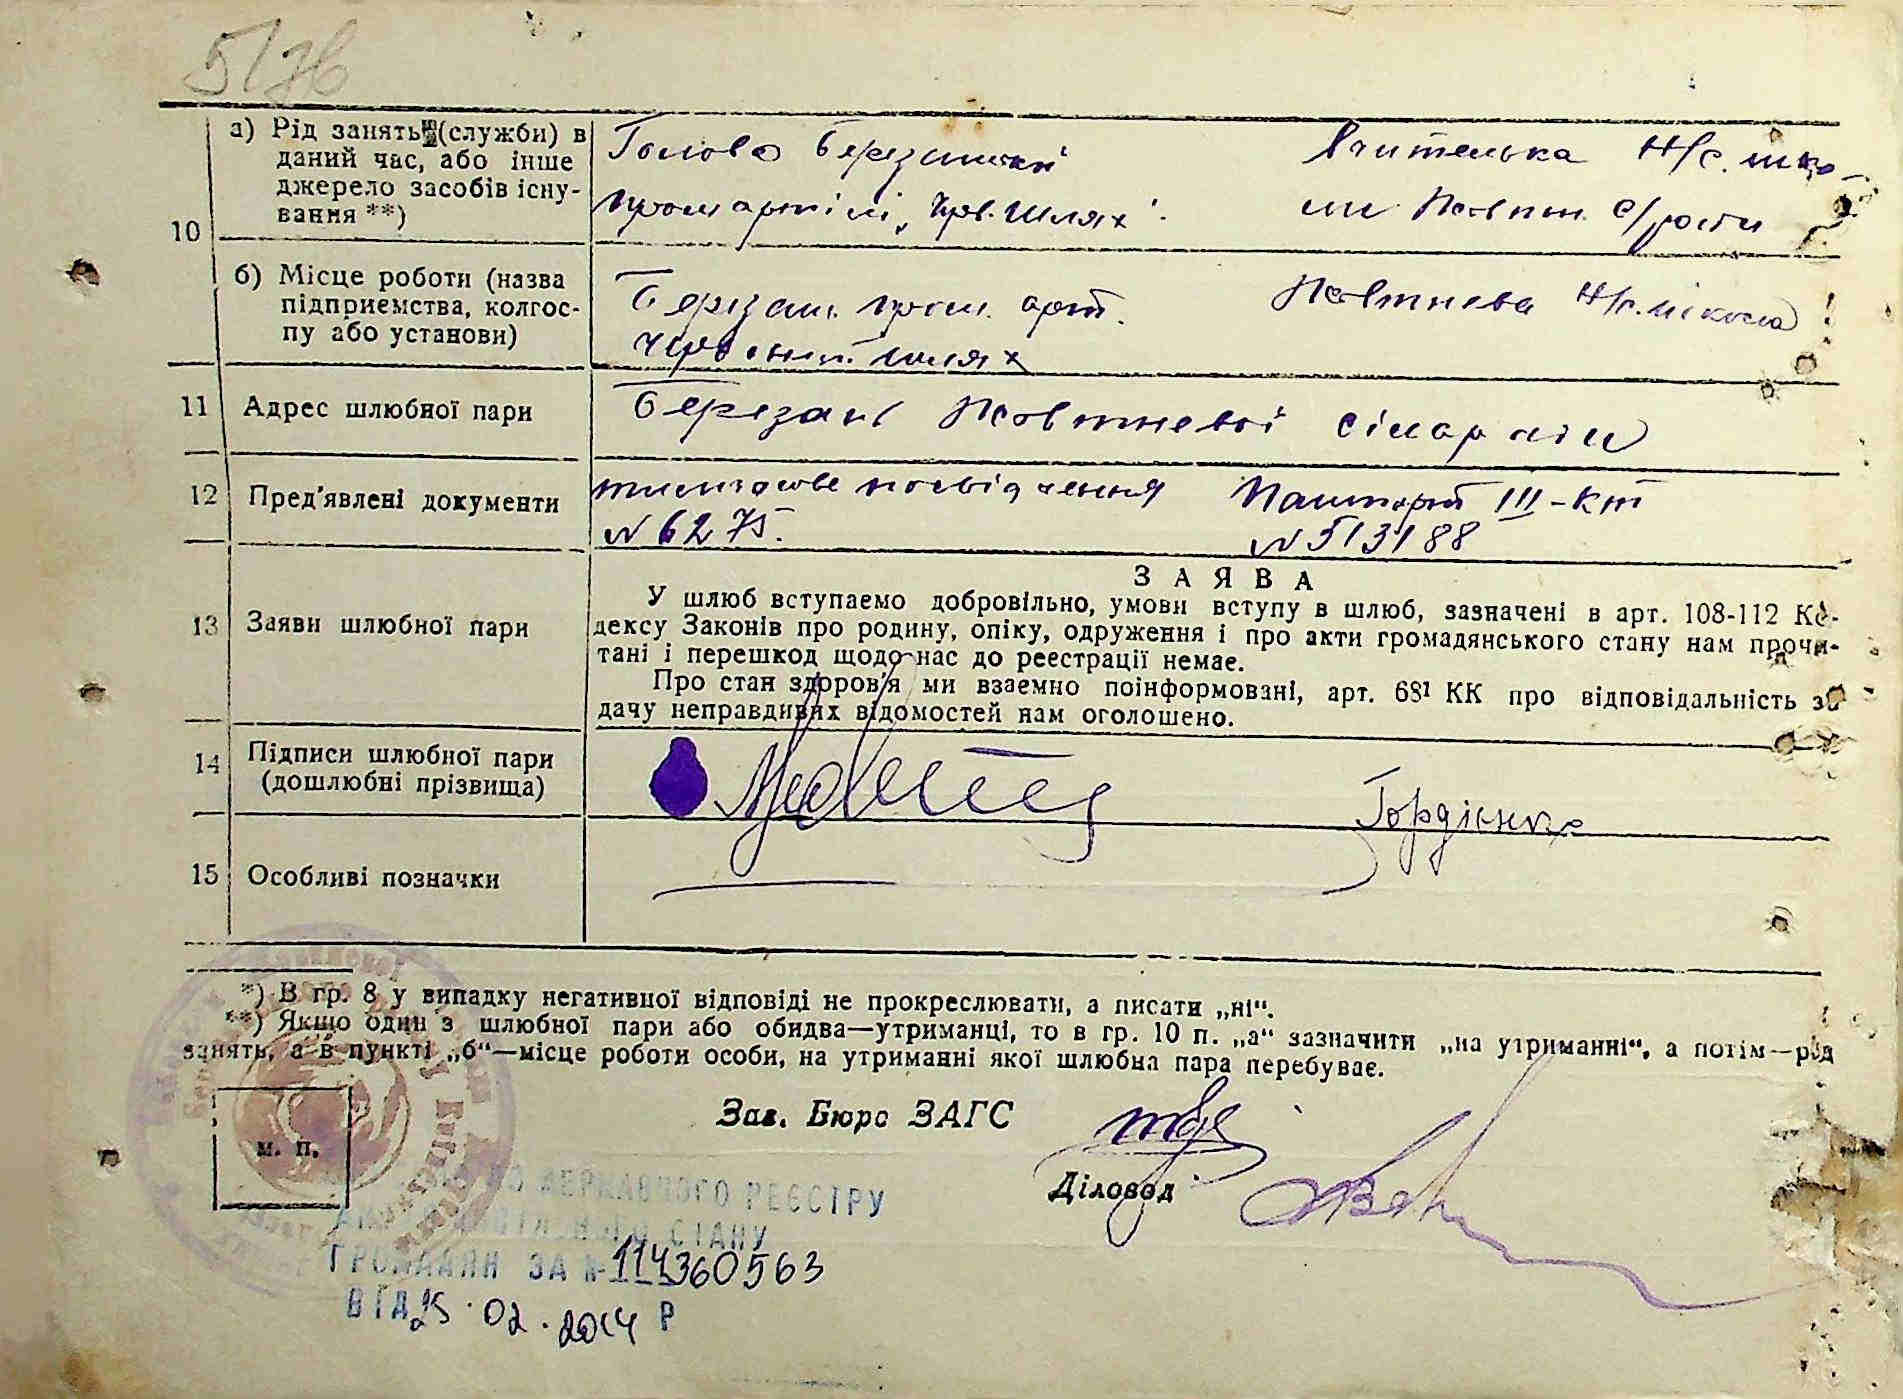 а) Рід занять (служби) в
даний час, або інше
джерело засобів існу-
вання **)
Голова Березанської
промартілі „Чрв. Шлях".
Вчителька Н/с. шко-
ли Жовтн. с/ради
10
б) Місце роботи (назва
підприємства, колгос-
пу або установи)
Березан. пром. арт.
Червоний шлях
Жовтнева Н/с. школа
11 Адрес шлюбної пари
Березань Жовтневої сільради
12 Пред'явлені документи
тимчасове посвідчення
№ 6275.
Пашпорт III-КТ
№ 513188
13 Заяви шлюбної пари
ЗАЯВА
У шлюб вступаємо добровільно, умови вступу в шлюб, зазначені в арт. 108-112 Ко-
дексу Законів про родину, опіку, одруження і про акти громадянського стану нам прочи-
тані і перешкод щодо нас до реєстрації немає.
Про стан здоров'я ми взаємно поінформовані, арт. 68¹ КК про відповідальність за
дачу неправдивих відомостей нам оголошено.
14 Підписи шлюбної пари
(дошлюбні прізвища)
Гордієнко
15 Особливі позначки
*) В гр. 8 у випадку негативної відповіді не прокреслювати, а писати „ні".
**) Якщо один з шлюбної пари або обидва—утриманці, то в гр. 10 п. „а" зазначити „на утриманні", а потім—рід
занять, а в пункті „б"—місце роботи особи, на утриманні якої шлюбна пара перебуває.
Зав. Бюро ЗАГС
м. п.
Діловод
ДО ДЕРЖАВНОГО РЕЄСТРУ
СТАНУ
ГРОМАДЯН ЗА № 114360563
ВІД 25.02.2014 Р